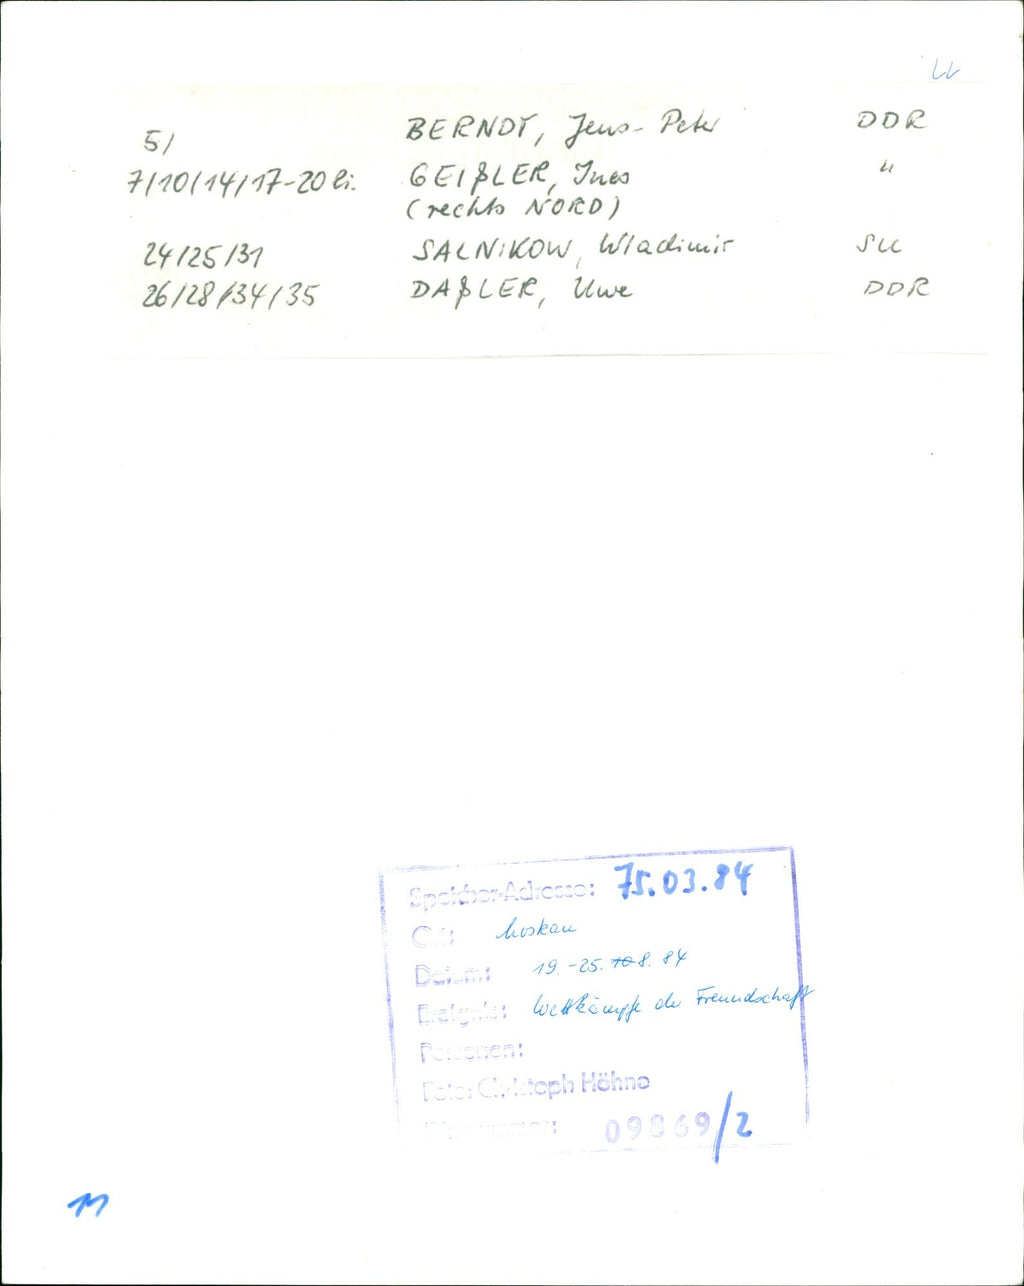 5/ BERNDT, Jens-Peter DDR
7/10/14/17-20 li. GEIßLER, Ines "
(rechts NORD)
24/25/31 SALNIKOW, Wladimir SU
26/28/34/35 DAßLER, Uwe DDR
Speicher-Adresse: 75.03.84
Ort: Moskau
Datum: 19.-25. 8. 84
Ereignis: Wettkämpfe der Freundschaft
Personen:
Foto: Christoph Höhne
09869/2
11